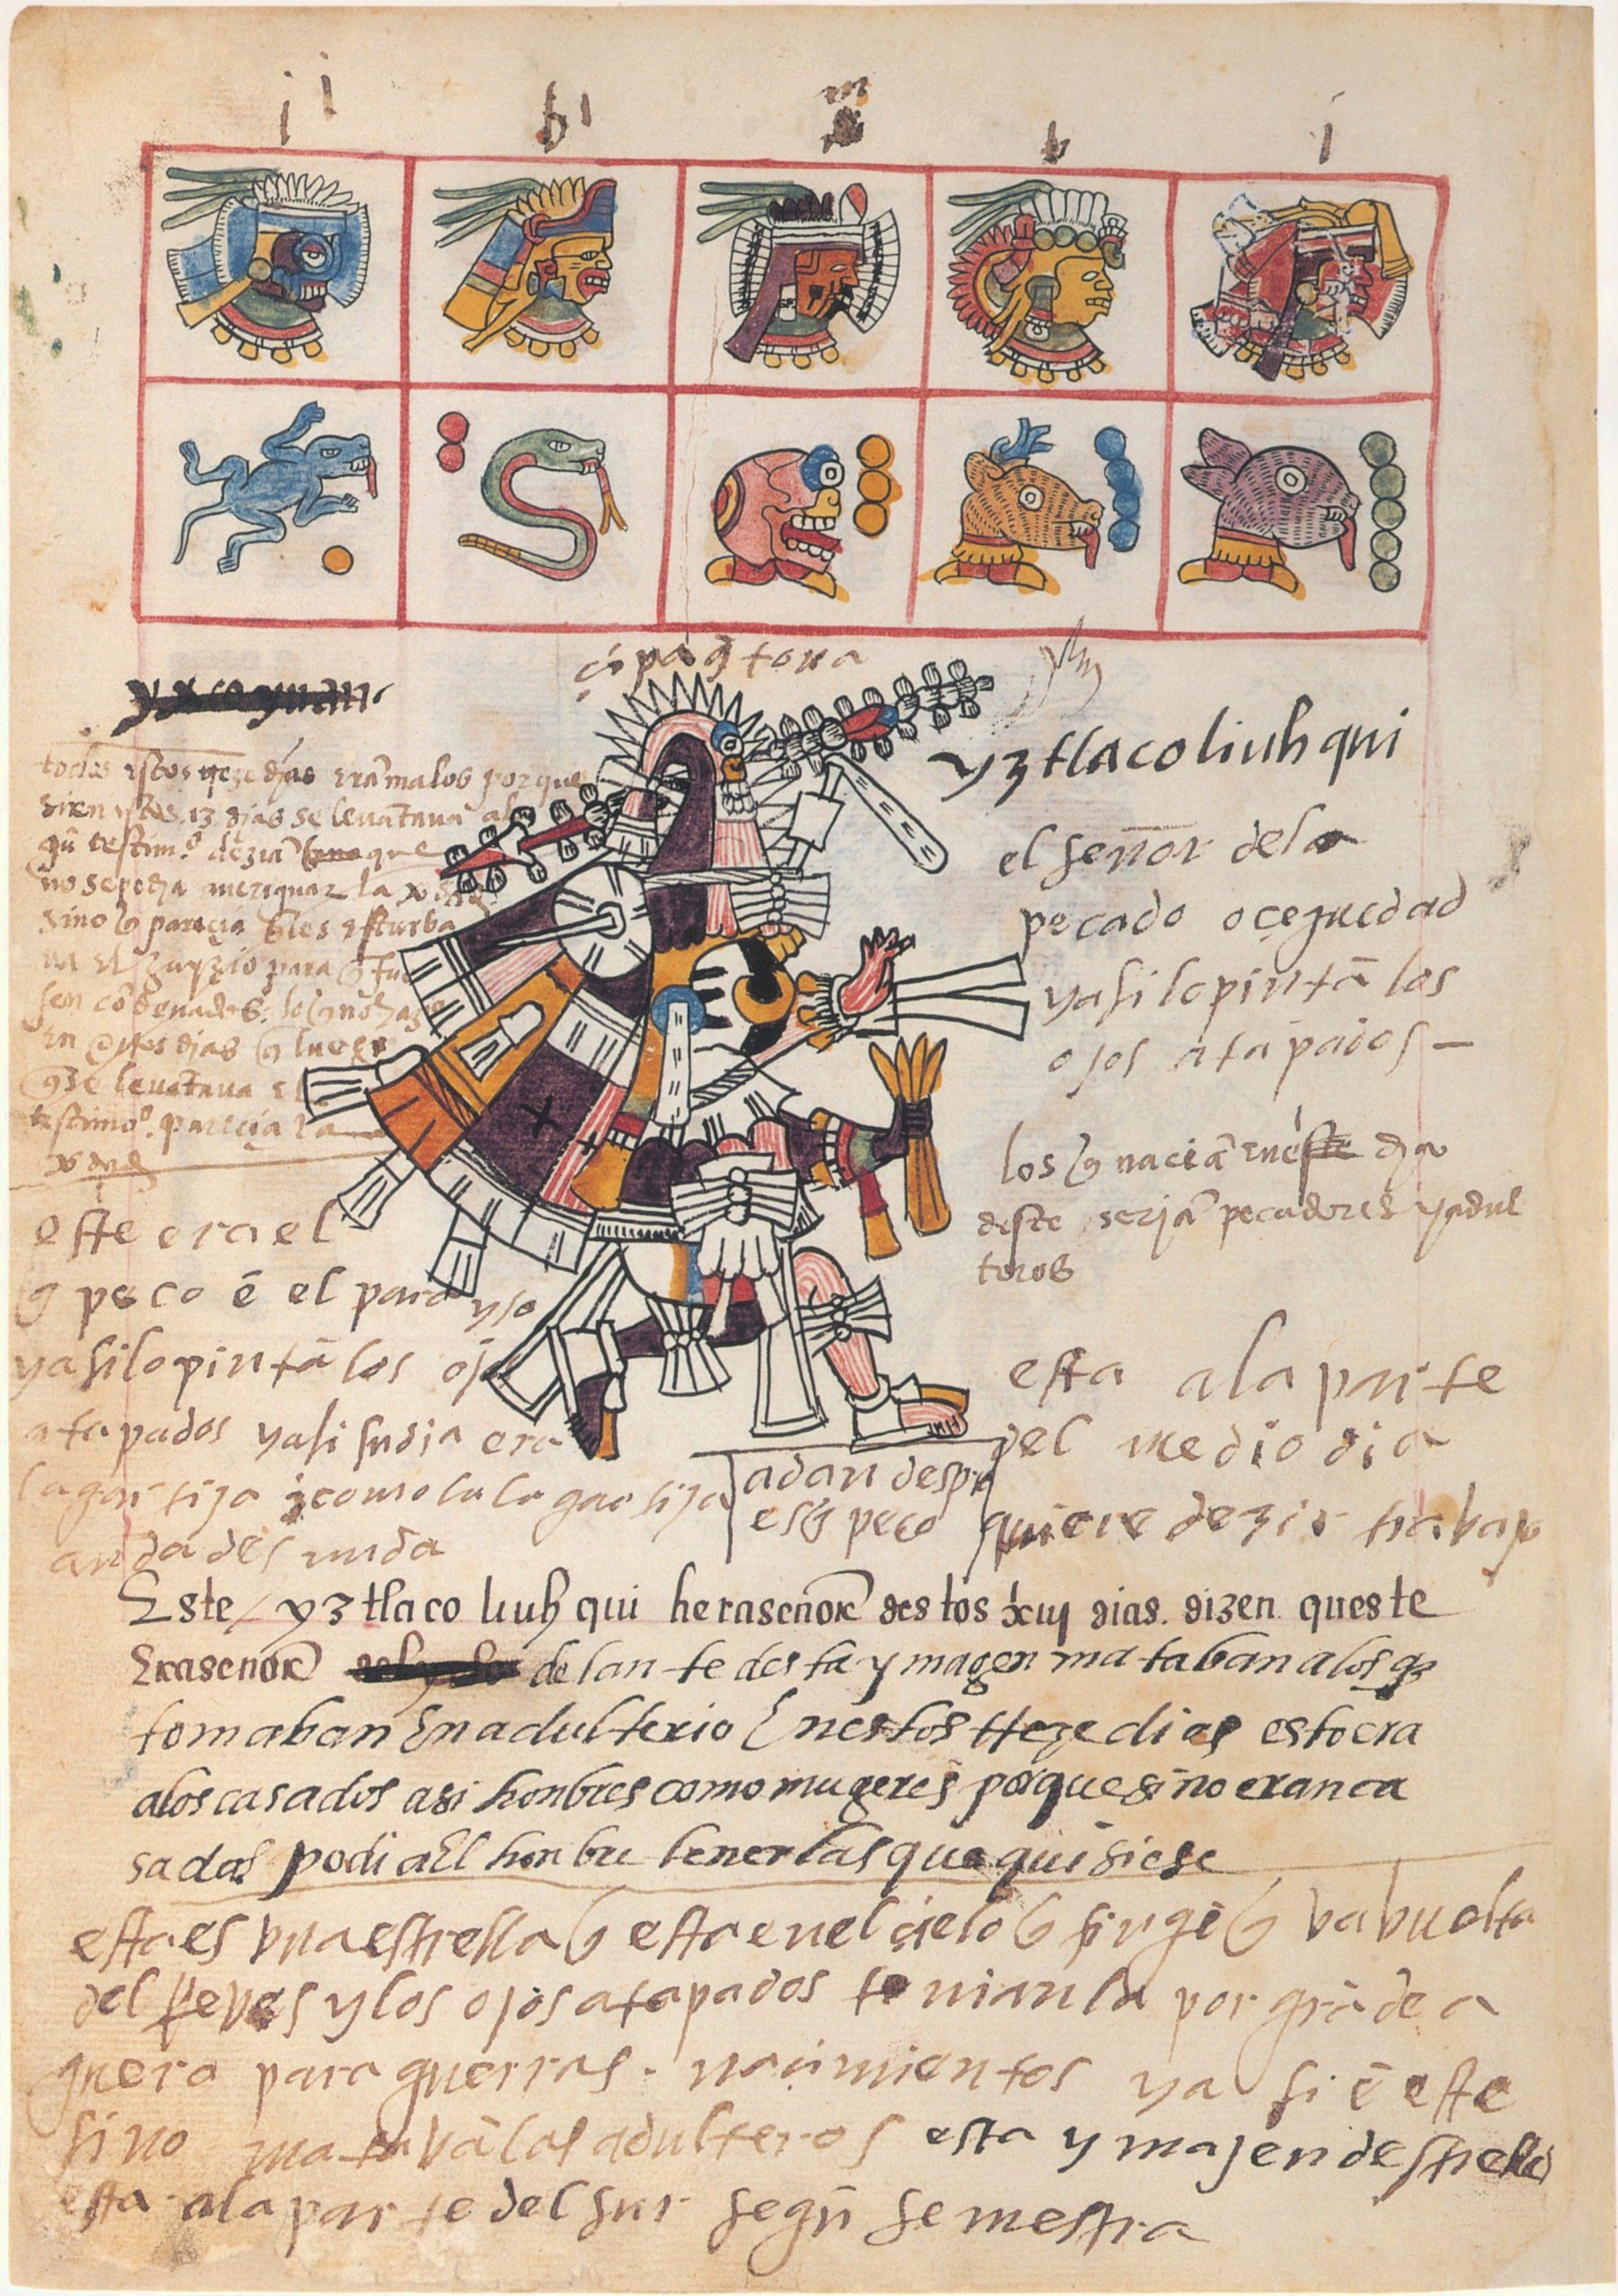 i i bi m b i
çipaq tona
yztlacoliuhqui
todos estos treze dias erā malos porque
si en estos 13 dias se levātava al
gū testimº. dezian que
no se podia averiguar la
sino q̄ parecia q̄ les esturba
va el juyzio para q̄ fue
sen cōdenados.
en estos dias q̄ luego
q̄ se levātava el
testimº. parecia la
este era el
q̄ peco ē el parayso
y asi lo pintā los ojos
atapados y asi su dia era
lagartija i como la lagartija
anda desnuda
el señor del
pecado o ceguedad
y asi lo pintā los
ojos atapados —
los q̄ naciā en este dia
deste serjā pecadores y adul
teros
esta a la parte
del medio dia
quiere dezir trabajo
adan despu
es q̄ peco
Este / yztlacoliuhqui hera señor destos xiij dias. dizen queste
Era señor delante desta ymagen mataban a los q̄
tomaban En adulterio Enestos treze dias esto era
a los casados asi honbres como mugeres porque si no eran ca
sadas podia El honbre tener las que quisiese
esta es vna estrella q̄ esta en el cielo q̄ fingē q̄ va buelta
del reves y los ojos atapados tenianla por grāde a
guero para guerras. nacimientos y asi ē este
sino matavā los adulteros esta ymajen destrella
esta a la parte del sur segū se mestra